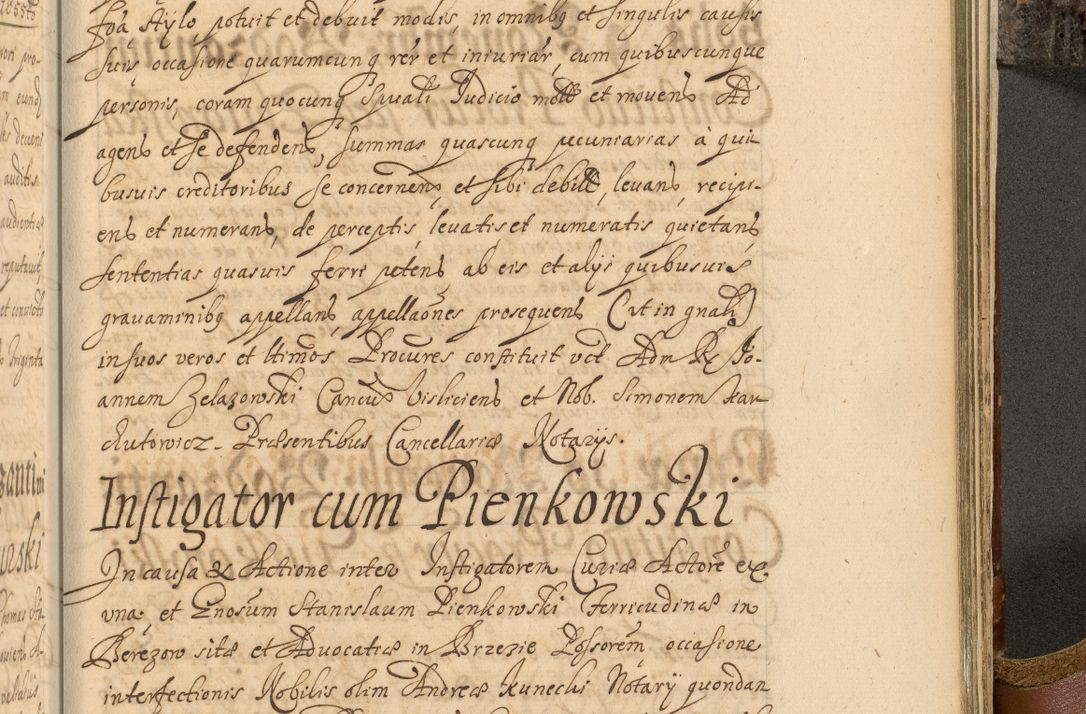 foâ Stÿlo potuit et debuit modis, in omnibq et singulis causis
suis occasione quarumcunq rer et iniuriar, cum quibuscunque
personis, coram quocunq Spuali Iudicio mott et movens Ad
agens et se defendens, summas quascunq pecuniarias à qui-
busuis creditoribus se concernen, et sibi debitt, levans, recipi-
ens et numerans, de perceptis, levatis et numeratis quietans
sententias quasuis ferri petens ab eis et alijs quibusuis
gravaminibq appellans, appellaones prosequens (ut in gnali)
in suos veros et ltimos Procures constituit vct Adm R Jo-
annem Zelazowski Cancus Visliciens et Nob. Simonem Kar
chutowicz - Præsentibus Cancellariæ Notarÿs.
Instigator cum Pienkowski
In causa & Actione inter Instigatorem Curiæ Actorē ex
vna, et Gnosum Stanislaum Pienkowski Ferricudinæ in
Berezow sitæ et Advocatiæ in Brzezie Possorem occasione
interfectionis Nobilis olim Andreæ Kunecki Notarÿ quondan